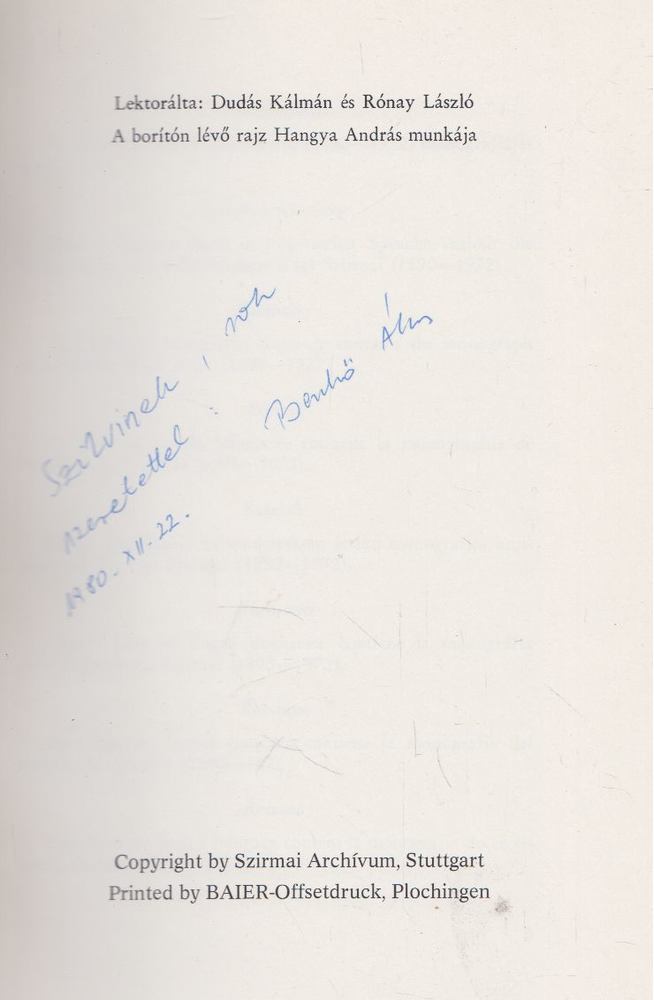 Lektorálta: Dudás Kálmán és Rónay László
A borítón lévő rajz Hangya András munkája
Szilvinek, sok
szeretettel: Benkő Ákos
1980. XII. 22.
Copyright by Szirmai Archívum, Stuttgart
Printed by BAIER-Offsetdruck, Plochingen